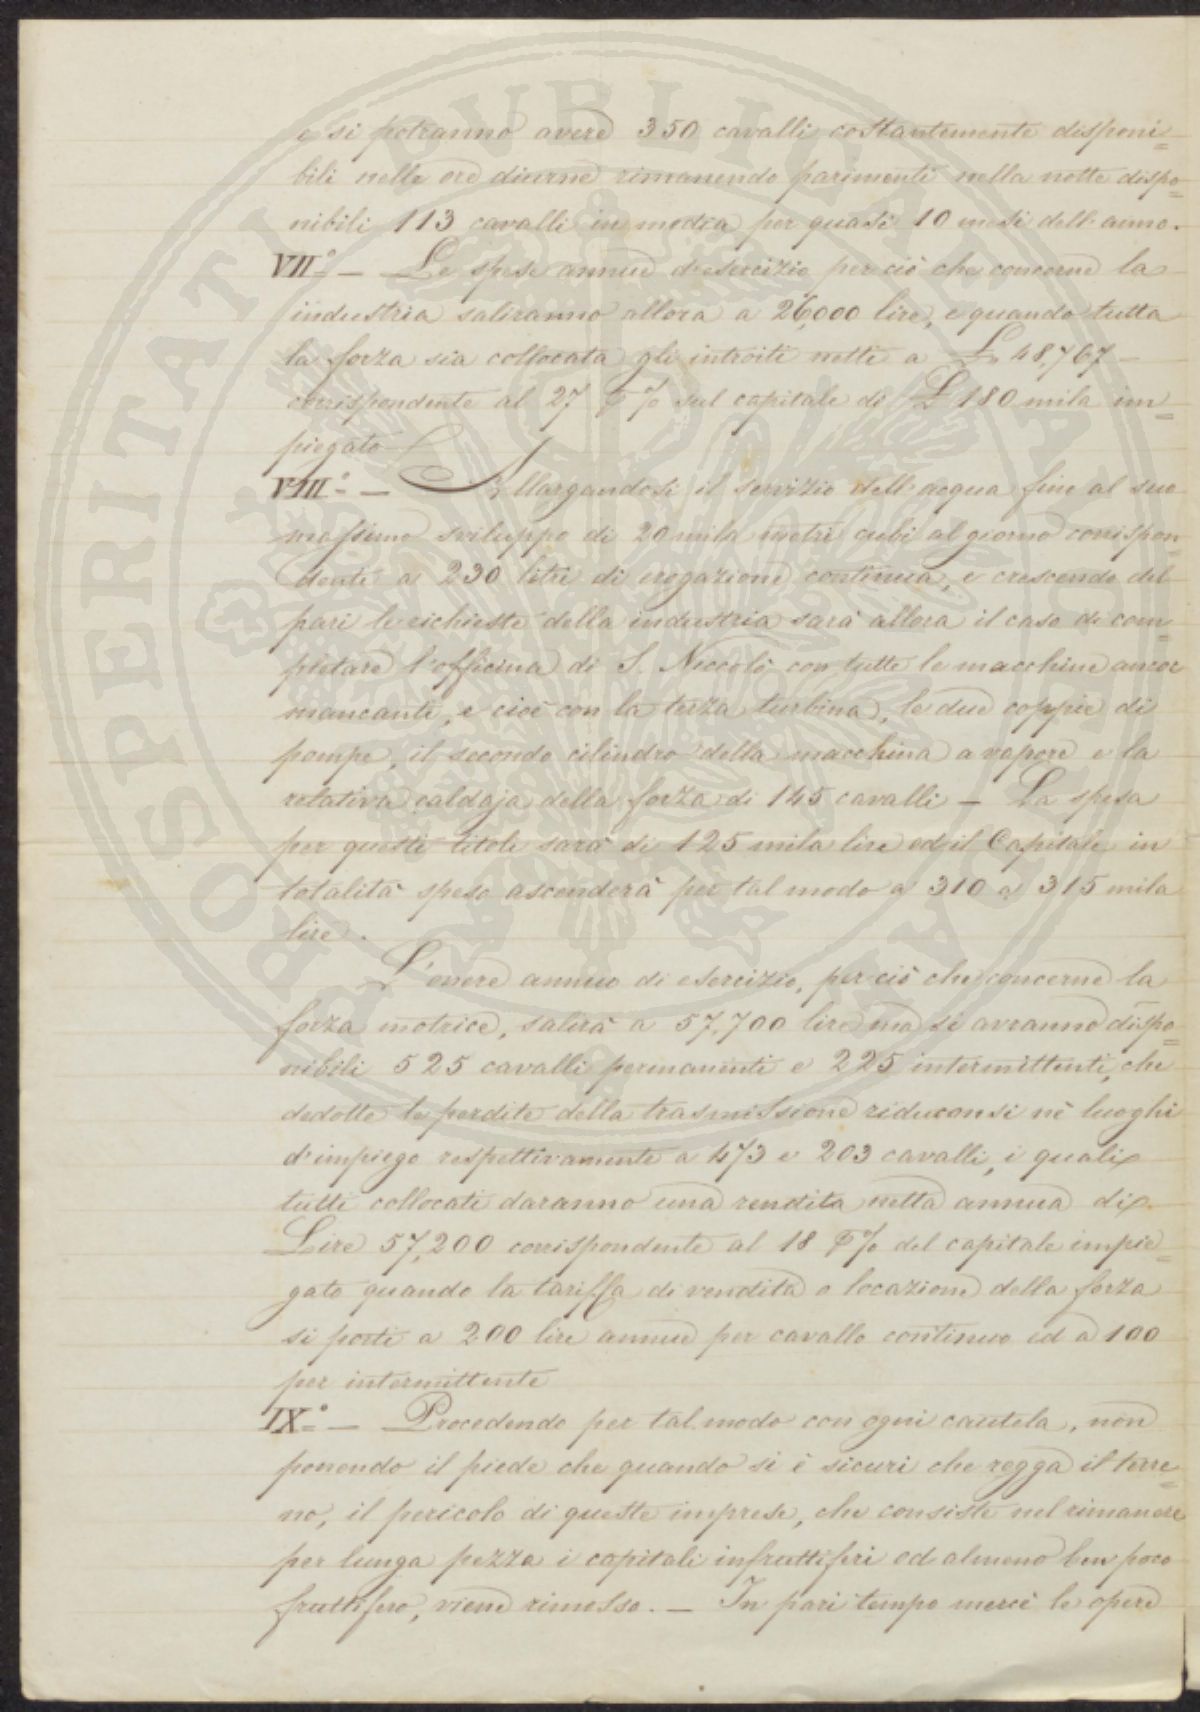 e si potranno avere 350 cavalli costantemente disponi=
bili nelle ore diurne rimanendo parimenti nella notte dispo=
nibili 113 cavalli in media per quasi 10 mesi dell'anno.
VII.° — Le spese annue d'esercizio per ciò che concerne la
industria saliranno allora a 26,000 lire, e quando tutta
la forza sia collocata gli introiti netti a £ 48,767 —
corrispondente al 27 p% sul capitale di £ 180 mila im=
piegato
VIII.° — Allargandosi il servizio dell'acqua fino al suo
massimo sviluppo di 20 mila metri cubi al giorno corrispon=
dente a 230 litri di erogazione continua, e crescendo del
pari le richieste della industria sarà allora il caso di com=
pletare l'officina di S. Niccolò con tutte le macchine ancor
mancanti, e cioè con la terza turbina, le due coppie di
pompe, il secondo cilindro della macchina a vapore e la
relativa caldaja della forza di 145 cavalli — La spesa
per questi titoli sarà di 125 mila lire ed il Capitale in
totalità speso ascenderà per tal modo a 310 a 315 mila
lire.
L'onere annuo di esercizio, per ciò che concerne la
forza motrice, salirà a 57,700 lire ma si avranno dispo=
nibili 525 cavalli permanenti e 225 intermittenti, che
dedotte le perdite della trasmissione riduconsi nè luoghi
d'impiego respettivamente a 473 e 203 cavalli, i quali
tutti collocati daranno una rendita netta annua di
Lire 57,200 corrispondente al 18 p% del capitale impie=
gato quando la tariffa di vendita o locazione della forza
si porti a 200 lire annue per cavallo continuo ed a 100
per intermittente
IX.° — Procedendo per tal modo con ogni cautela, non
ponendo il piede che quando si è sicuri che regga il terre=
no, il pericolo di queste imprese, che consiste nel rimanere
per lunga pezza i capitali infruttiferi od almeno ben poco
fruttifero, viene rimosso. — In pari tempo mercè le opere
PROSPERITATI PVBLICAE AVGENDAE